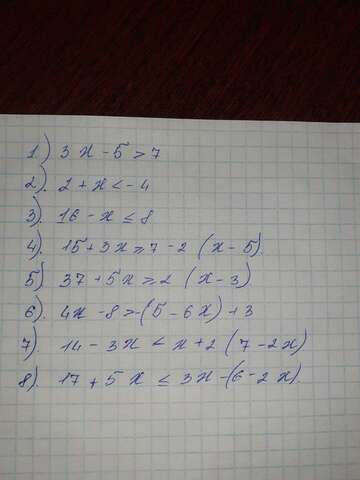 1) 3x - 5 > 7
2). 2 + x < - 4
3). 16 - x ≤ 8
4). 15 + 3x ≥ 7 - 2 (x - 5).
5) 37 + 5x ≥ 2 (x - 3)
6). 4x - 8 > -(5 - 6x) + 3
7). 14 - 3x < x + 2 (7 - 2x)
8). 17 + 5x ≤ 3x - (6 - 2x).